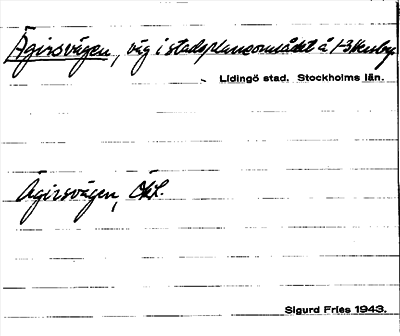 Ägirsvägen, väg i stadsplaneområdet å
Lidingö stad. Stockholms län.
Ägirsvägen,
Sigurd Fries 1943.